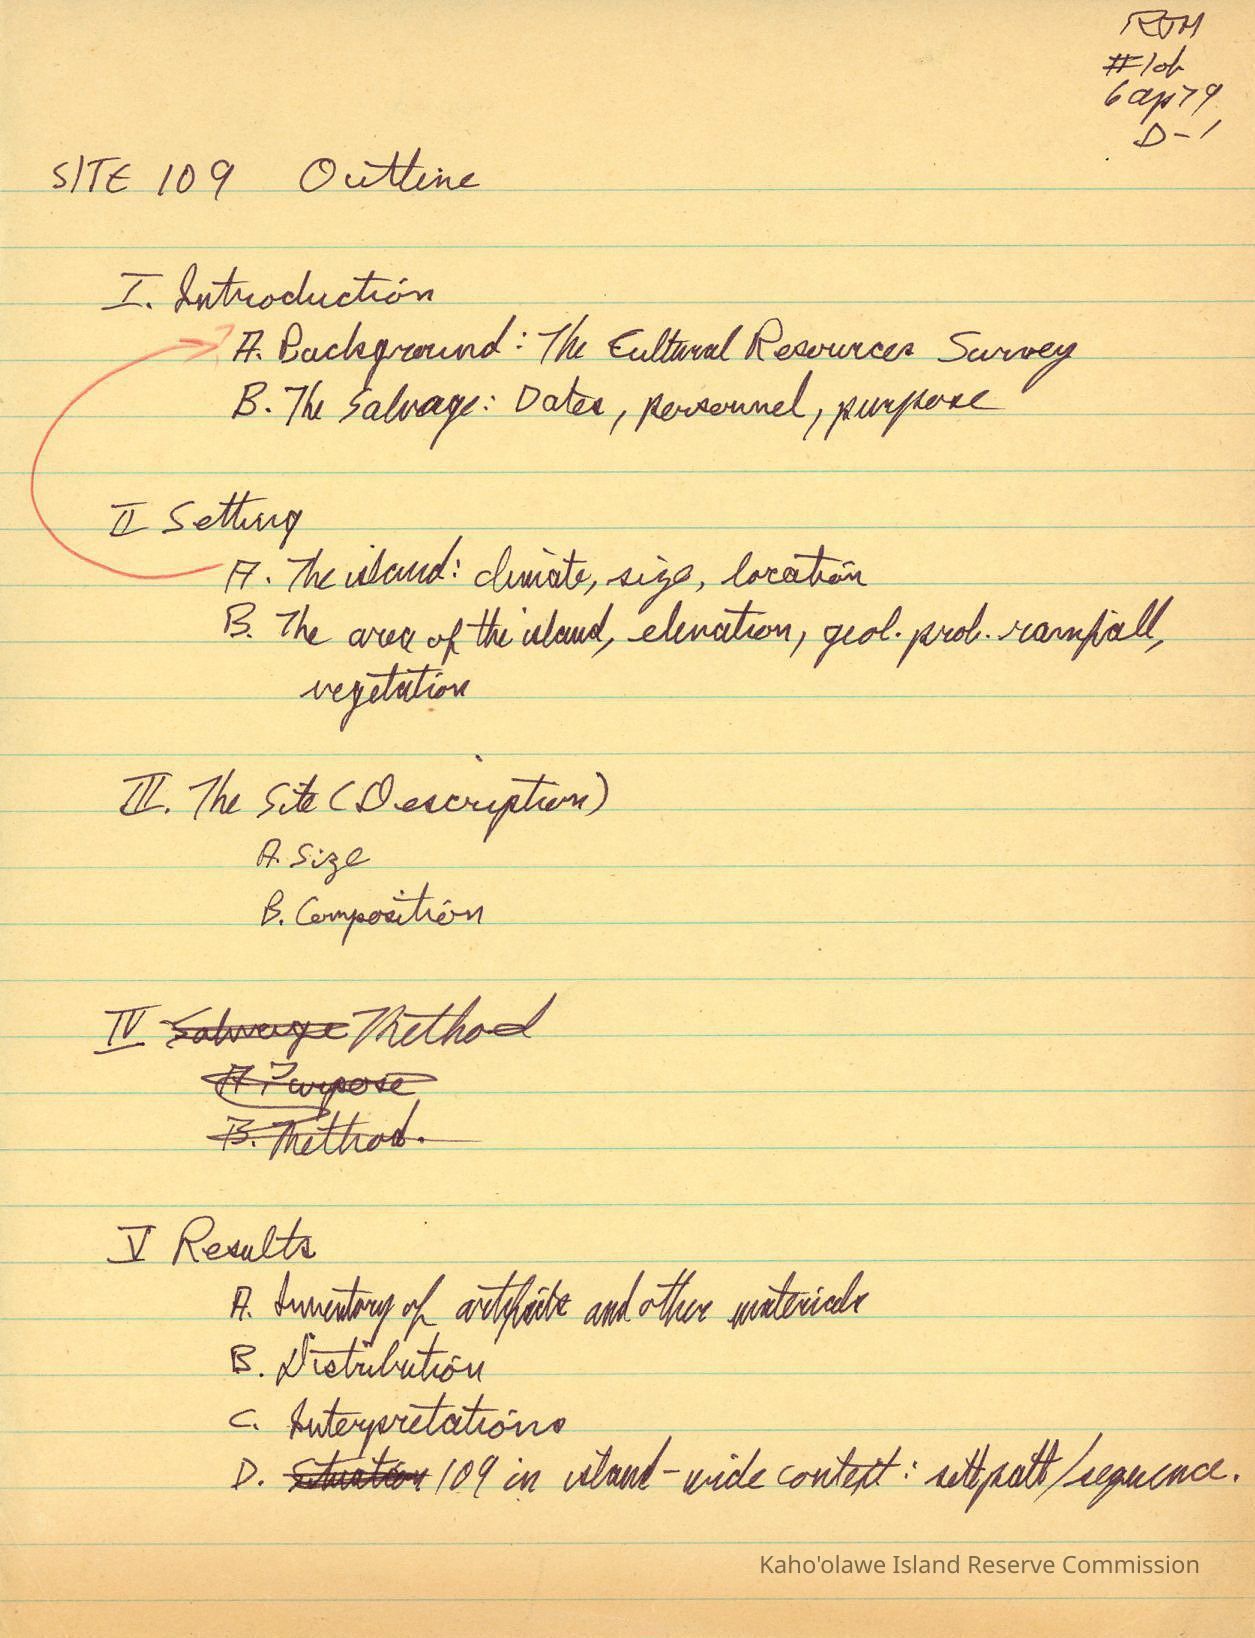 RJM
#106
6 Ap 79
D-1
SITE 109 Outline
I. Introduction
A. Background: The Cultural Resources Survey
B. The Salvage: Dates, personnel, purpose
II Setting
A. The island: climate, size, location
B. The area of the island, elevation, geol. prob. rainfall,
vegetation
III. The Site (Description)
A. Size
B. Composition
IV Salvage Method
A. Purpose
B. Method.
V Results
A. Inventory of artifacts and other materials
B. Distribution
C. Interpretations
D. Situation 109 in island-wide context: settpatt/sequence.
Kaho'olawe Island Reserve Commission